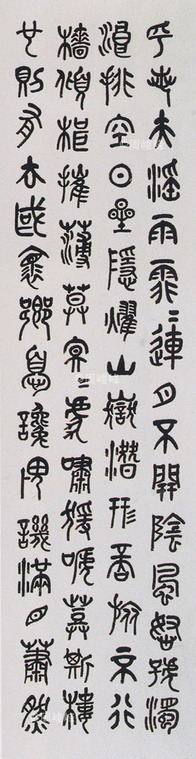 乎若夫淫雨霏霏連月不開陰風怒號濁
浪排空日星隱耀山嶽潛形商旅不行
檣傾楫摧薄莫冥冥虎嘯猨啼登斯樓
也則有去國懷鄉憂讒畏譏滿目蕭然